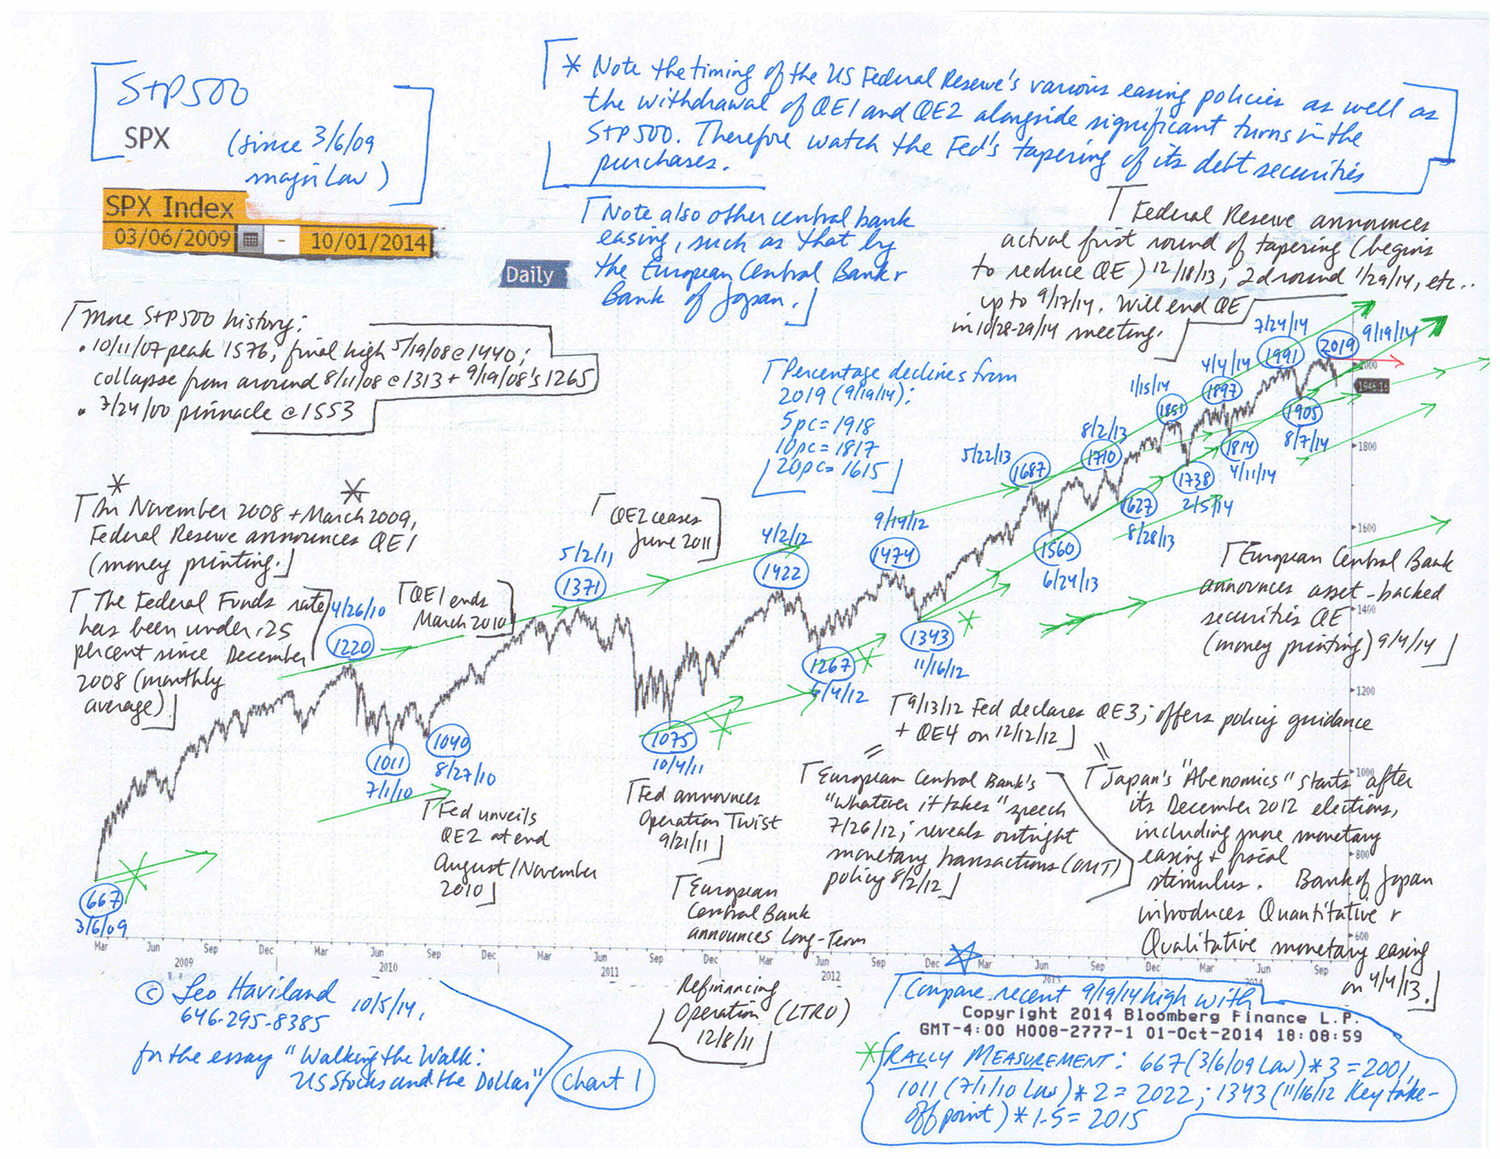 S+P500
SPX
(since 3/6/09
major low)
SPX Index
03/06/2009 - 10/01/2014
Daily
* Note the timing of the US Federal Reserve's various easing policies as well as
the withdrawal of QE1 and QE2 alongside significant turns in the
S+P500. Therefore watch the Fed's tapering of its debt securities
purchases.
Note also other central bank
easing, such as that by
the European Central Bank +
Bank of Japan.
Federal Reserve announces
actual first round of tapering (begins
to reduce QE) 12/18/13; 2d round 1/29/14, etc..
up to 9/17/14. Will end QE
in 10/28-29/14 meeting.
More S+P500 history:
• 10/11/07 peak 1576, final high 5/19/08 @ 1440;
collapse from around 8/11/08 @ 1313 + 9/19/08's 1265
• 3/24/00 pinnacle @ 1553
Percentage declines from
2019 (9/19/14):
5pc = 1918
10pc = 1817
20pc = 1615
* *
In November 2008 + March 2009,
Federal Reserve announces QE1
(money printing.)
The Federal Funds rate
has been under .25
percent since December
2008 (monthly
average)
QE1 ends
March 2010
QE2 ceases
June 2011
4/26/10
1220
5/2/11
1371
4/2/12
1422
9/14/12
1474
5/22/13
1687
8/2/13
1710
1/15/14
1851
4/4/14
1897
7/24/14
1991
2019
9/19/14
2000
1946.16
1800
1600
1400
1200
1000
800
600
1905
8/7/14
1814
4/11/14
1738
2/5/14
1627
8/28/13
1560
6/24/13
1343
11/16/12
1267
6/4/12
1075
10/4/11
1040
8/27/10
1011
7/1/10
667
3/6/09
European Central Bank
announces asset-backed
securities QE
(money printing) 9/4/14
9/13/12 Fed declares QE3; offers policy guidance
+ QE4 on 12/12/12
Fed unveils
QE2 at end
August/November
2010
Fed announces
Operation Twist
9/21/11
European
Central Bank
announces Long-Term
Refinancing
Operation (LTRO)
12/8/11
European Central Bank's
"whatever it takes" speech
7/26/12; reveals outright
monetary transactions (OMT)
policy 8/2/12
Japan's "Abenomics" starts after
its December 2012 elections,
including more monetary
easing + fiscal
stimulus. Bank of Japan
introduces Quantitative +
Qualitative monetary easing
on 4/4/13.
Mar Jun Sep Dec Mar Jun Sep Dec Mar Jun Sep Dec Mar Jun Sep Dec Mar Jun Sep Dec Mar Jun Sep
2009 2010 2011 2012 2013 2014
© Leo Haviland 10/5/14.
646-295-8385
for the essay "Walking the Walk:
US Stocks and the Dollar"
Chart 1
Compare recent 9/19/14 high with
Copyright 2014 Bloomberg Finance L.P.
GMT-4:00 H008-2777-1 01-Oct-2014 18:08:59
* RALLY MEASUREMENT: 667 (3/6/09 low) * 3 = 2001,
1011 (7/1/10 low) * 2 = 2022; 1343 (11/16/12 key take-
off point) * 1.5 = 2015